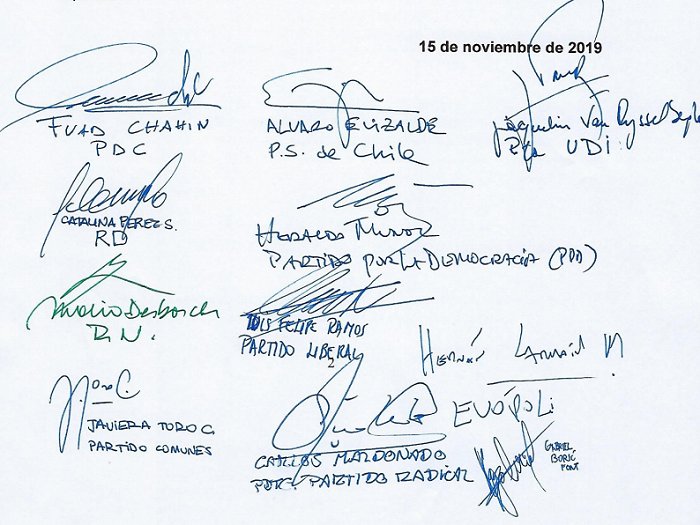 15 de noviembre de 2019
FUAD CHAHIN
PDC
ALVARO ELIZALDE
P.S. de Chile
Jaquelin Van Rysselberghe
Pta UDI
CATALINA PEREZ S.
RD
HERALDO MUÑOZ
PARTIDO POR LA DEMOCRACIA (PPD)
Mario Desbordes
R.N.
LUIS FELIPE RAMOS
PARTIDO LIBERAL
HERNÁN LARRAÍN M
EVÓPOLI
JAVIERA TORO C
PARTIDO COMUNES
2
CARLOS MALDONADO
PDTE. PARTIDO RADICAL
GABRIEL
BORIC
FONT